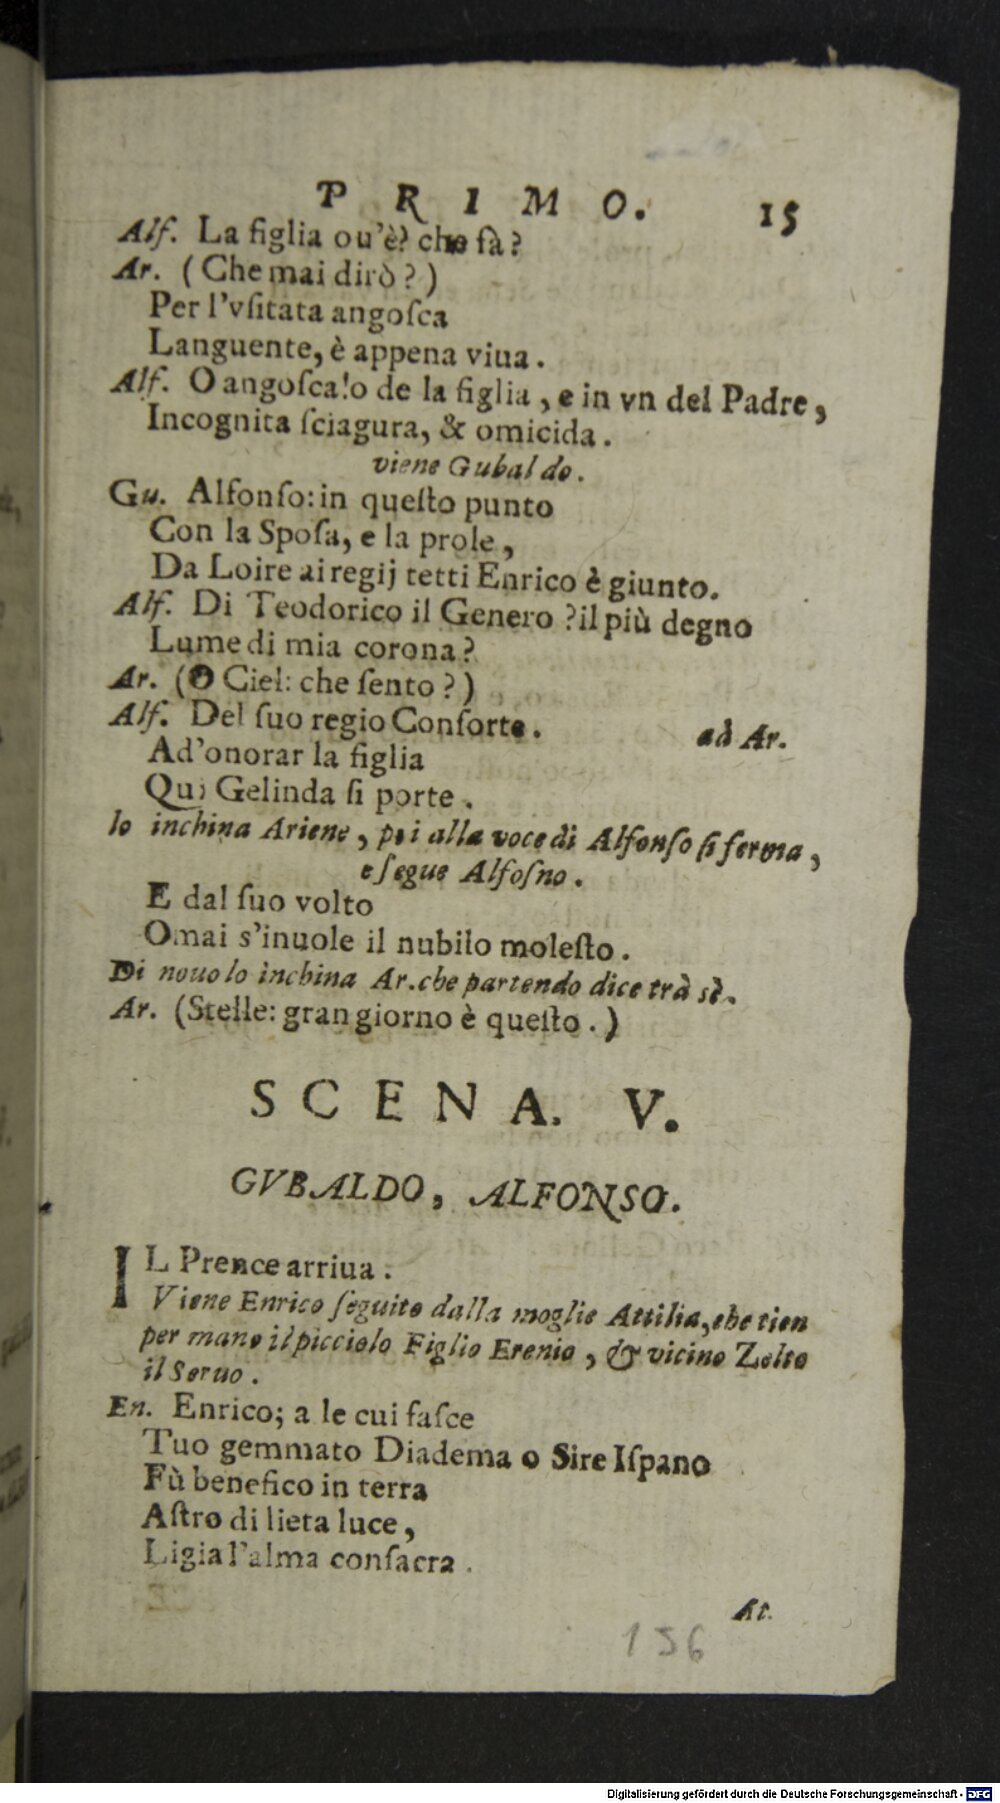 PRIMO. 15
Alf. La figlia ou'è? che fà?
Ar. (Che mai dirò?)
Per l'vſitata angoſca
Languente, è appena viua.
Alf. O angoſca! o de la figlia, e in vn del Padre,
Incognita ſciagura, & omicida.
viene Gubaldo.
Gu. Alfonſo: in queſto punto
Con la Spoſa, e la prole,
Da Loire ai regij tetti Enrico è giunto.
Alf. Di Teodorico il Genero? il più degno
Lume di mia corona?
Ar. (O Ciel: che ſento?)
Alf. Del ſuo regio Conſorte. ad Ar.
Ad'onorar la figlia
Qui Gelinda ſi porte.
lo inchina Ariene, poi alla voce di Alfonſo ſi ferma,
e ſegue Alfoſno.
E dal ſuo volto
Omai s'inuole il nubilo moleſto.
Di nouo lo inchina Ar. che partendo dice trà sè.
Ar. (Stelle: gran giorno è queſto.)
SCENA. V.
GVBALDO, ALFONSO.
IL Prence arriua.
Viene Enrico ſeguito dalla moglie Attilia, che tien
per mano il picciolo Figlio Erenio, & vicino Zelto
il Seruo.
En. Enrico; a le cui faſce
Tuo gemmato Diadema o Sire Iſpano
Fù benefico in terra
Aſtro di lieta luce,
Ligia l'alma conſacra.
At.
156
Digitalisierung gefördert durch die Deutsche Forschungsgemeinschaft - DFG